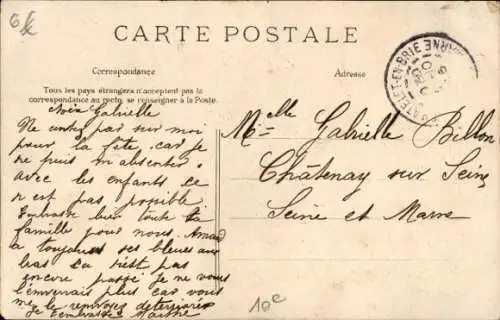 6 fr
CARTE POSTALE
Correspondance
Adresse
Tous les pays étrangers n'acceptent pas la
correspondance au recto se renseigner à la Poste.
CHATELET-EN-BRIE
MARNE
Gabrielle
Ne compte pas sur moi
pour la fête car je
ne puis m'absenter
avec les enfants ce
n est pas possible
Embrasse bien toute la
famille pour nous.
a toujours ses bleues aux
bras Ca n'est pas
encore passé je ne vous
l'enverrais plus car vous
me le
Je t'embrasse
Melle Gabrielle Billon
Châtenay sur Seine
Seine et Marne
10e